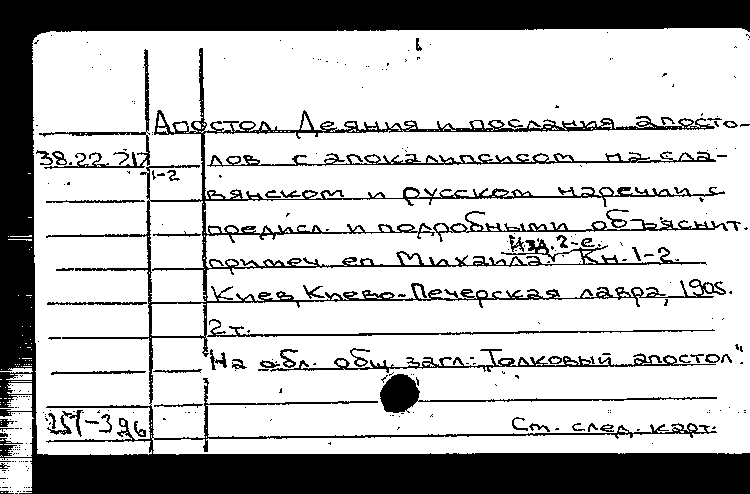 Апостол. Деяния и послания апосто-
38.22.212
1-2
лов с апокалипсисом на сла-
вянском и русском наречии, с
предисл. и подробными объяснит.
примеч. еп. Михаила. Изд. 2-е. Кн. 1-2.
Киев, Киево-Печерская лавра, 1905.
2 т.
На обл. общ. загл.: "Толковый апостол".
257-396
См. след. карт.